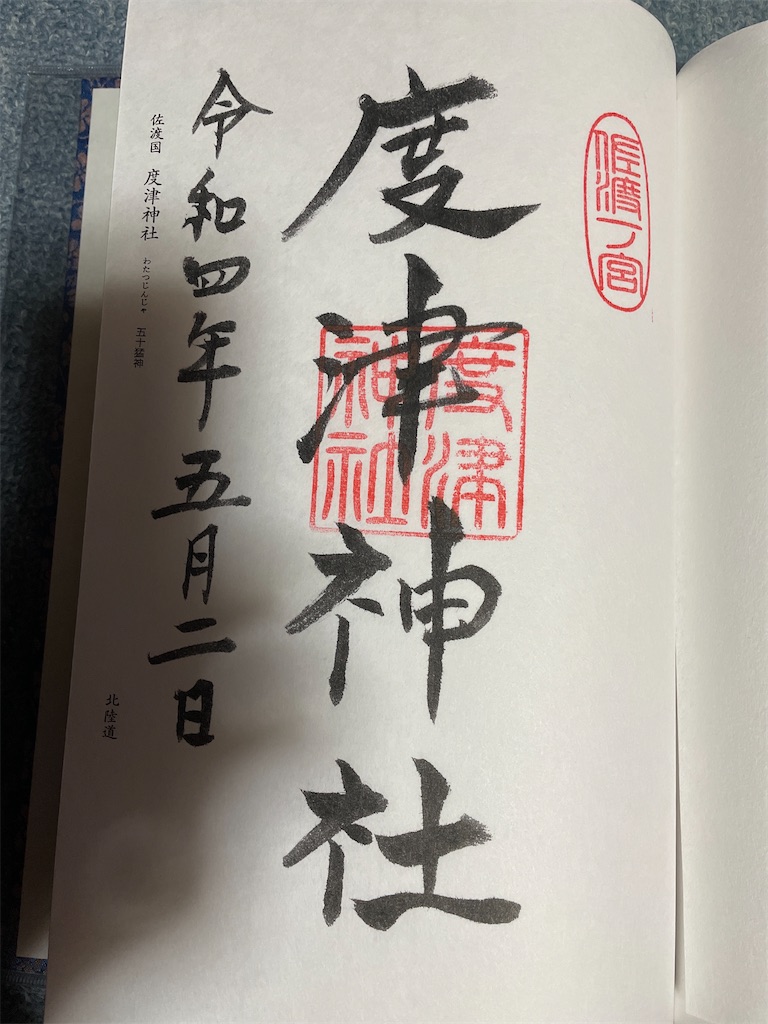 佐渡一宮
度津神社
度津
神社
令和四年五月二日
佐渡国 度津神社 わたつじんじゃ 五十猛神
北陸道